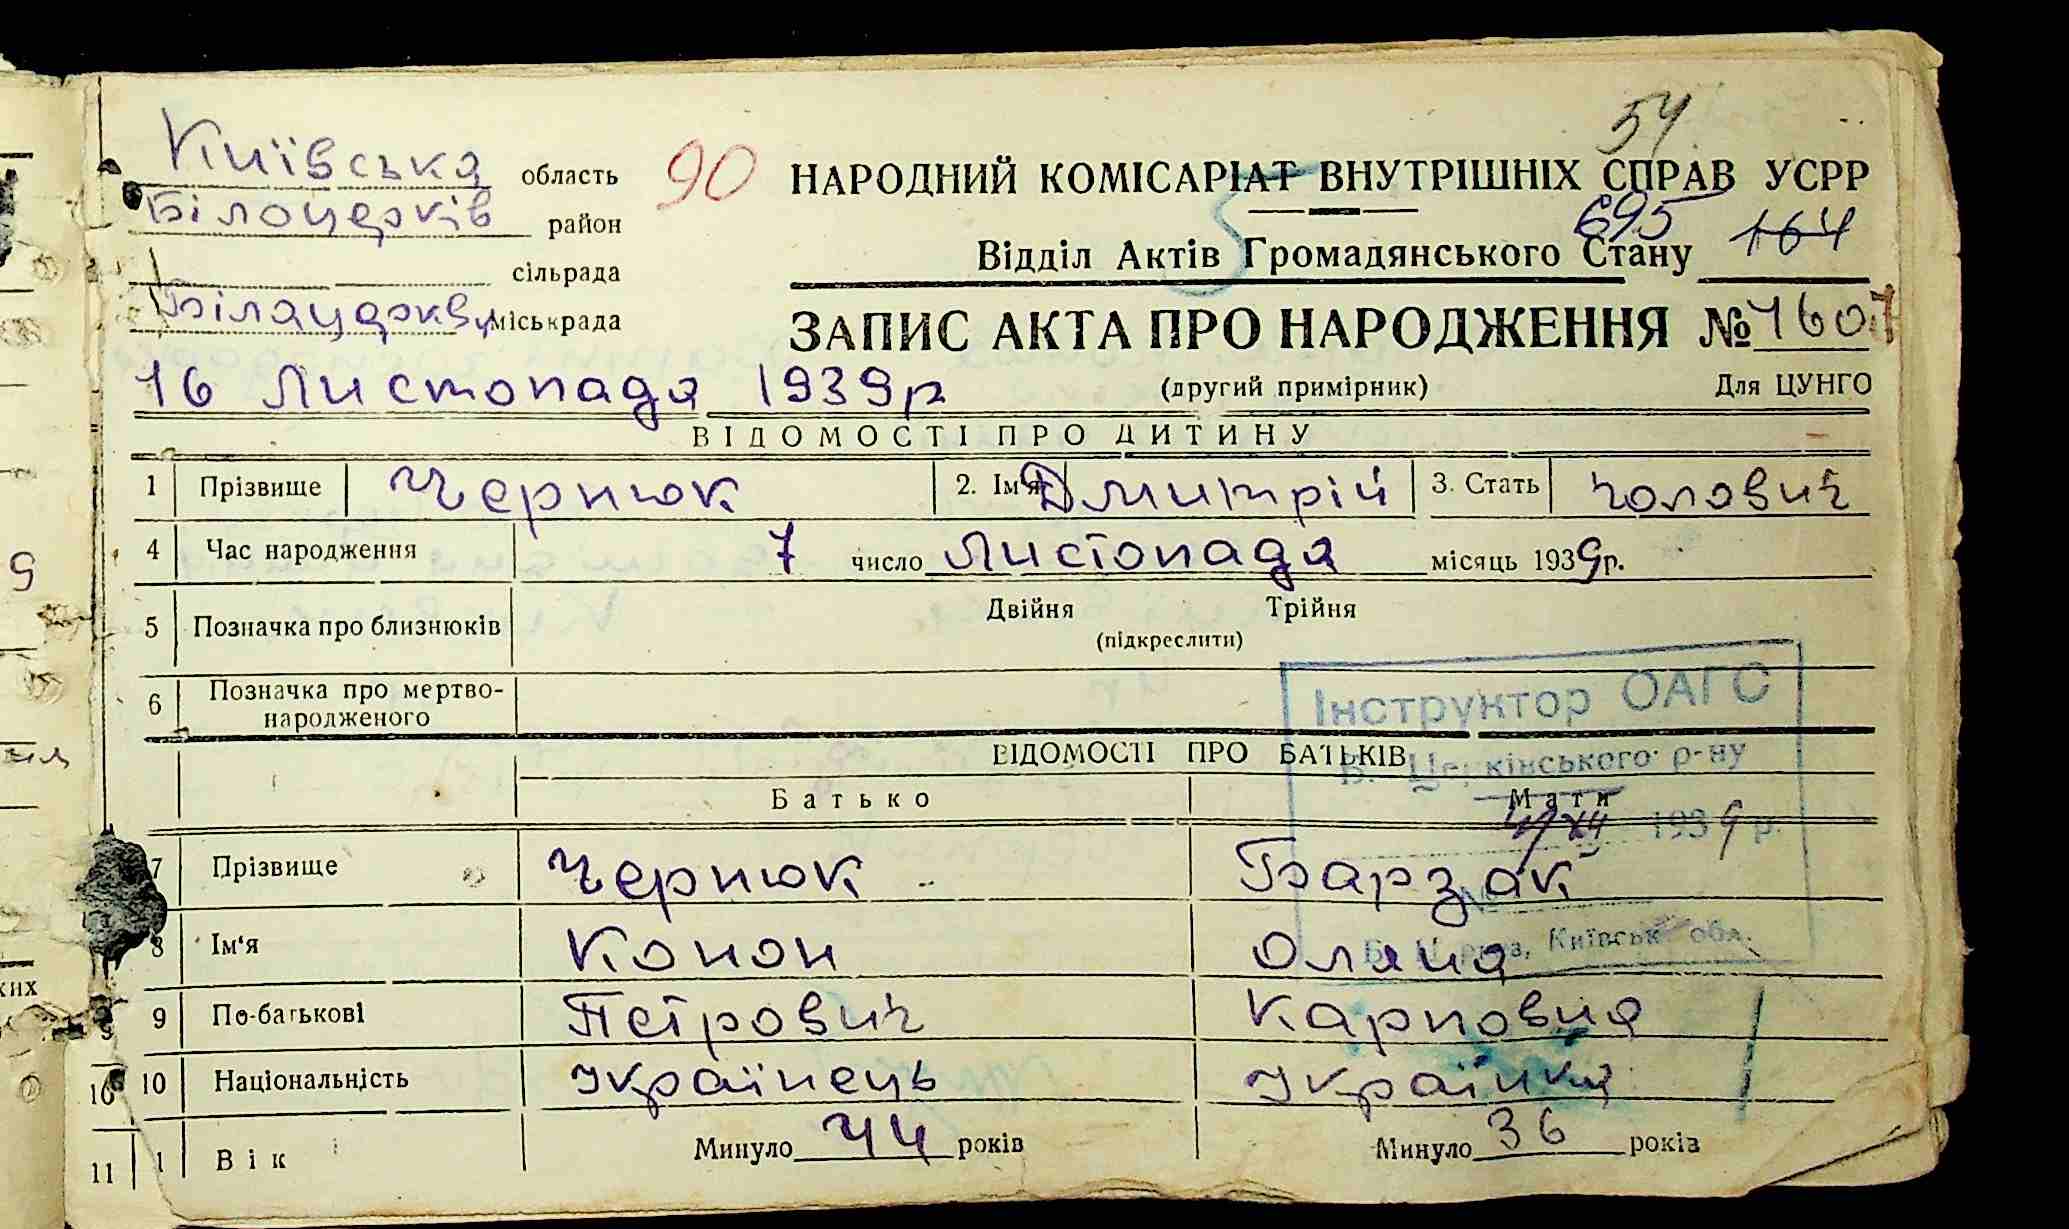 54
Київська область 90 НАРОДНИЙ КОМІСАРІАТ ВНУТРІШНІХ СПРАВ УСРР
Білоцерків район
695 164
Відділ Актів Громадянського Стану
сільрада
Білацеркв міськрада ЗАПИС АКТА ПРО НАРОДЖЕННЯ № 1607
16 Листопада 1939р (другий примірник) Для ЦУНГО
ВІДОМОСТІ ПРО ДИТИНУ
1 Прізвище Чернюк 2. Ім'я Дмитрій 3. Стать чолович
4 Час народження 7 число Листопада місяць 1939р.
5 Позначка про близнюків Двійня Трійня
(підкреслити)
6 Позначка про мертво-
народженого
Інструктор ОАГС
ВІДОМОСТІ ПРО БАТЬКІВ
Б. Церківського р-ну
Батько Мати
1939 р.
7 Прізвище Чернюк Барзак
№
8 Ім'я Конон Оляна
Б. Церква, Київськ. обл.
9 По-батькові Петрович Карповна
10 Національність Українець Українка
11 Вік Минуло 44 років Минуло 36 років